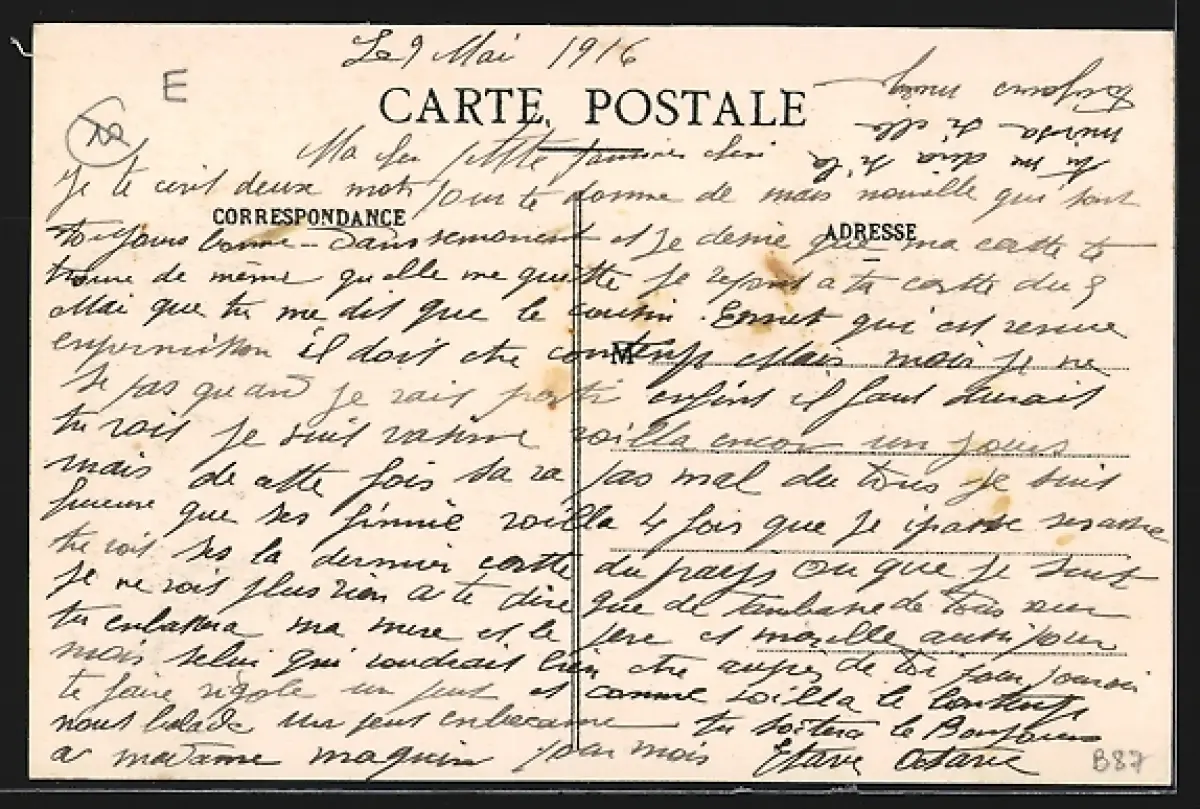 Le 9 Mai 1916
E
CARTE POSTALE
Ma petite chéri
Je te cerit deux mots pour te donne de mais nouville qui sont
CORRESPONDANCE
ADRESSE
toujours bonne - Dans ce moment et je desire que ma cartte te
trouve de même qu elle me quitte je repont a ta cartte du 3
Mai que tu me dit que le cousin Ernest qui est venue
enpermition il doit etre contemps Mais mois je ne
M
se pas quand je vais partir enfint il faut
tu vois je suit vasiné voilla encor un jours
mais de cette fois sa va pas mal du tous je suit
hureue que ses finnie voilla 4 fois que je ipasse
tu voit ses la dernier cartte du pays ou que je suit
je ne vois plus rien a te dire que de tenbrasse de tous
tu enbrassera ma mere et le pere et aussi pour
mois selui qui voudrait bien etre aupres de toi pour pouvoir
te faire rigole un peut et comme voilla le bontemps
nous balade un peut tu soitera le Bonjours
a madame maguin pour mois Octavie
tu me dira si la
si elle
toujours
B87